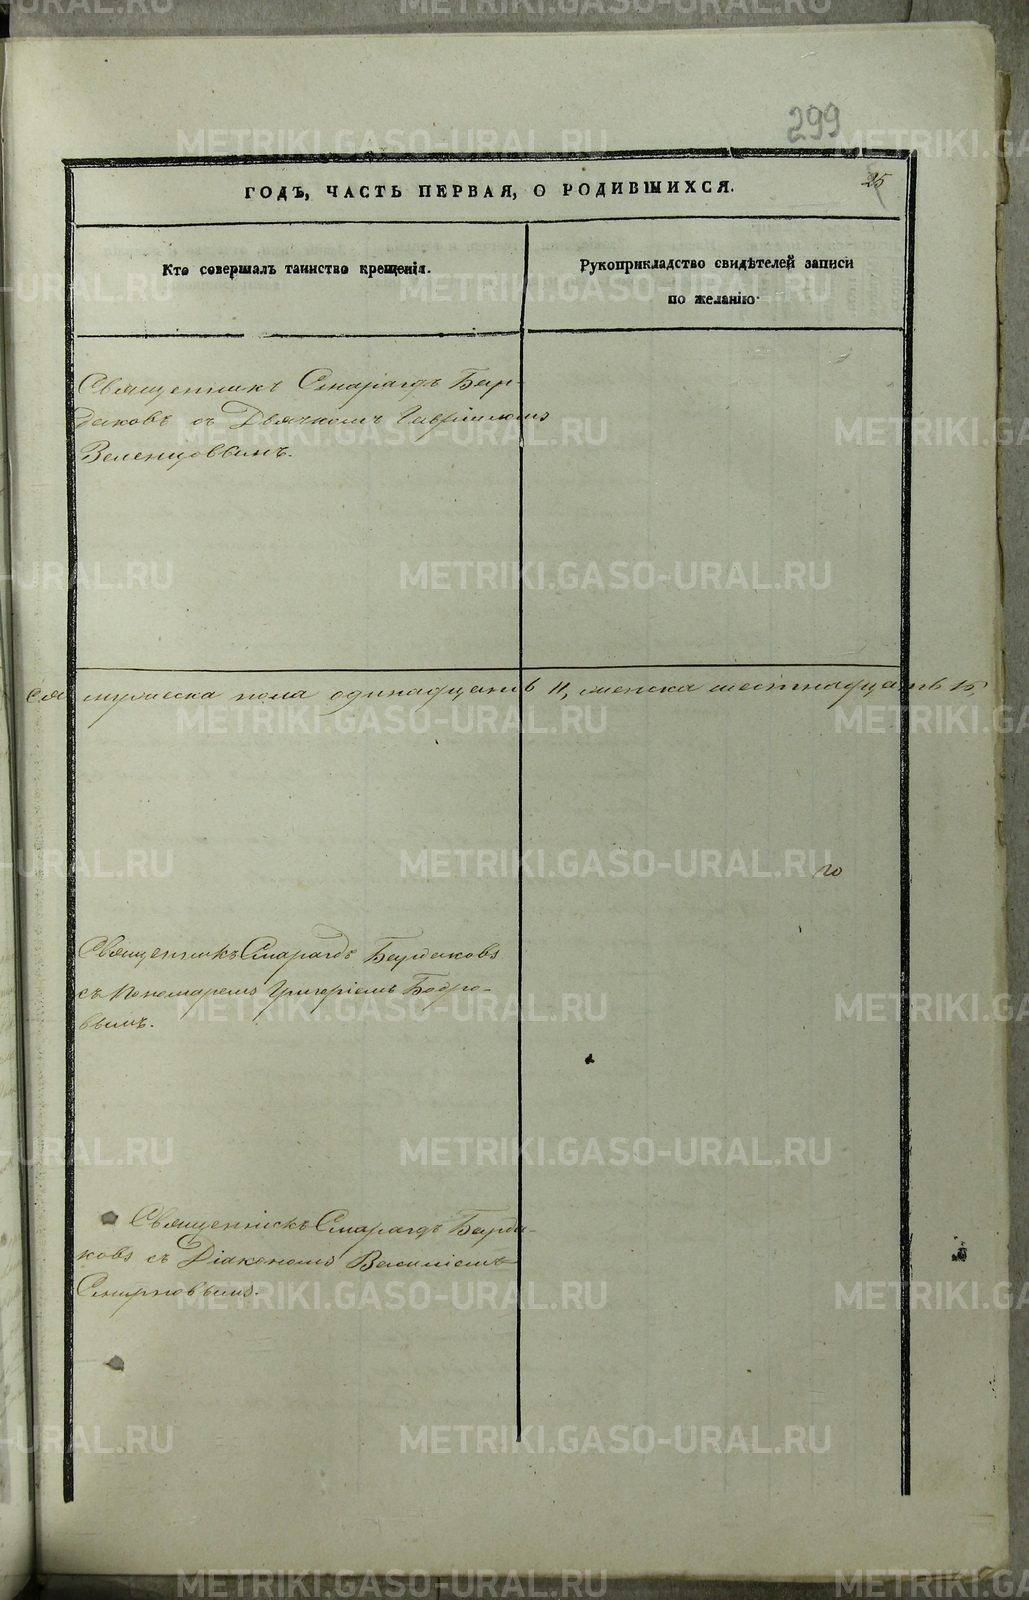 299
25
ГОДЪ, ЧАСТЬ ПЕРВАЯ, О РОДИВШИХСЯ.
Кто совершалъ таинство крещенія.
Рукоприкладство свидѣтелей записи
по желанію
Священникъ Смарагдъ Бир-
даковъ съ Дьячкомъ Гавріиломъ
Зеленцовымъ.
ся мужеска пола одинадцать 11, женска шестнадцать
го
Священникъ Смарагдъ Бирдаковъ
съ Пономаремъ Григоріемъ Бобро-
вымъ.
Священникъ Смарагдъ Бирда-
ковъ съ Діакономъ Василіемъ
Смирновымъ.
METRIKI.GASO-URAL.RU